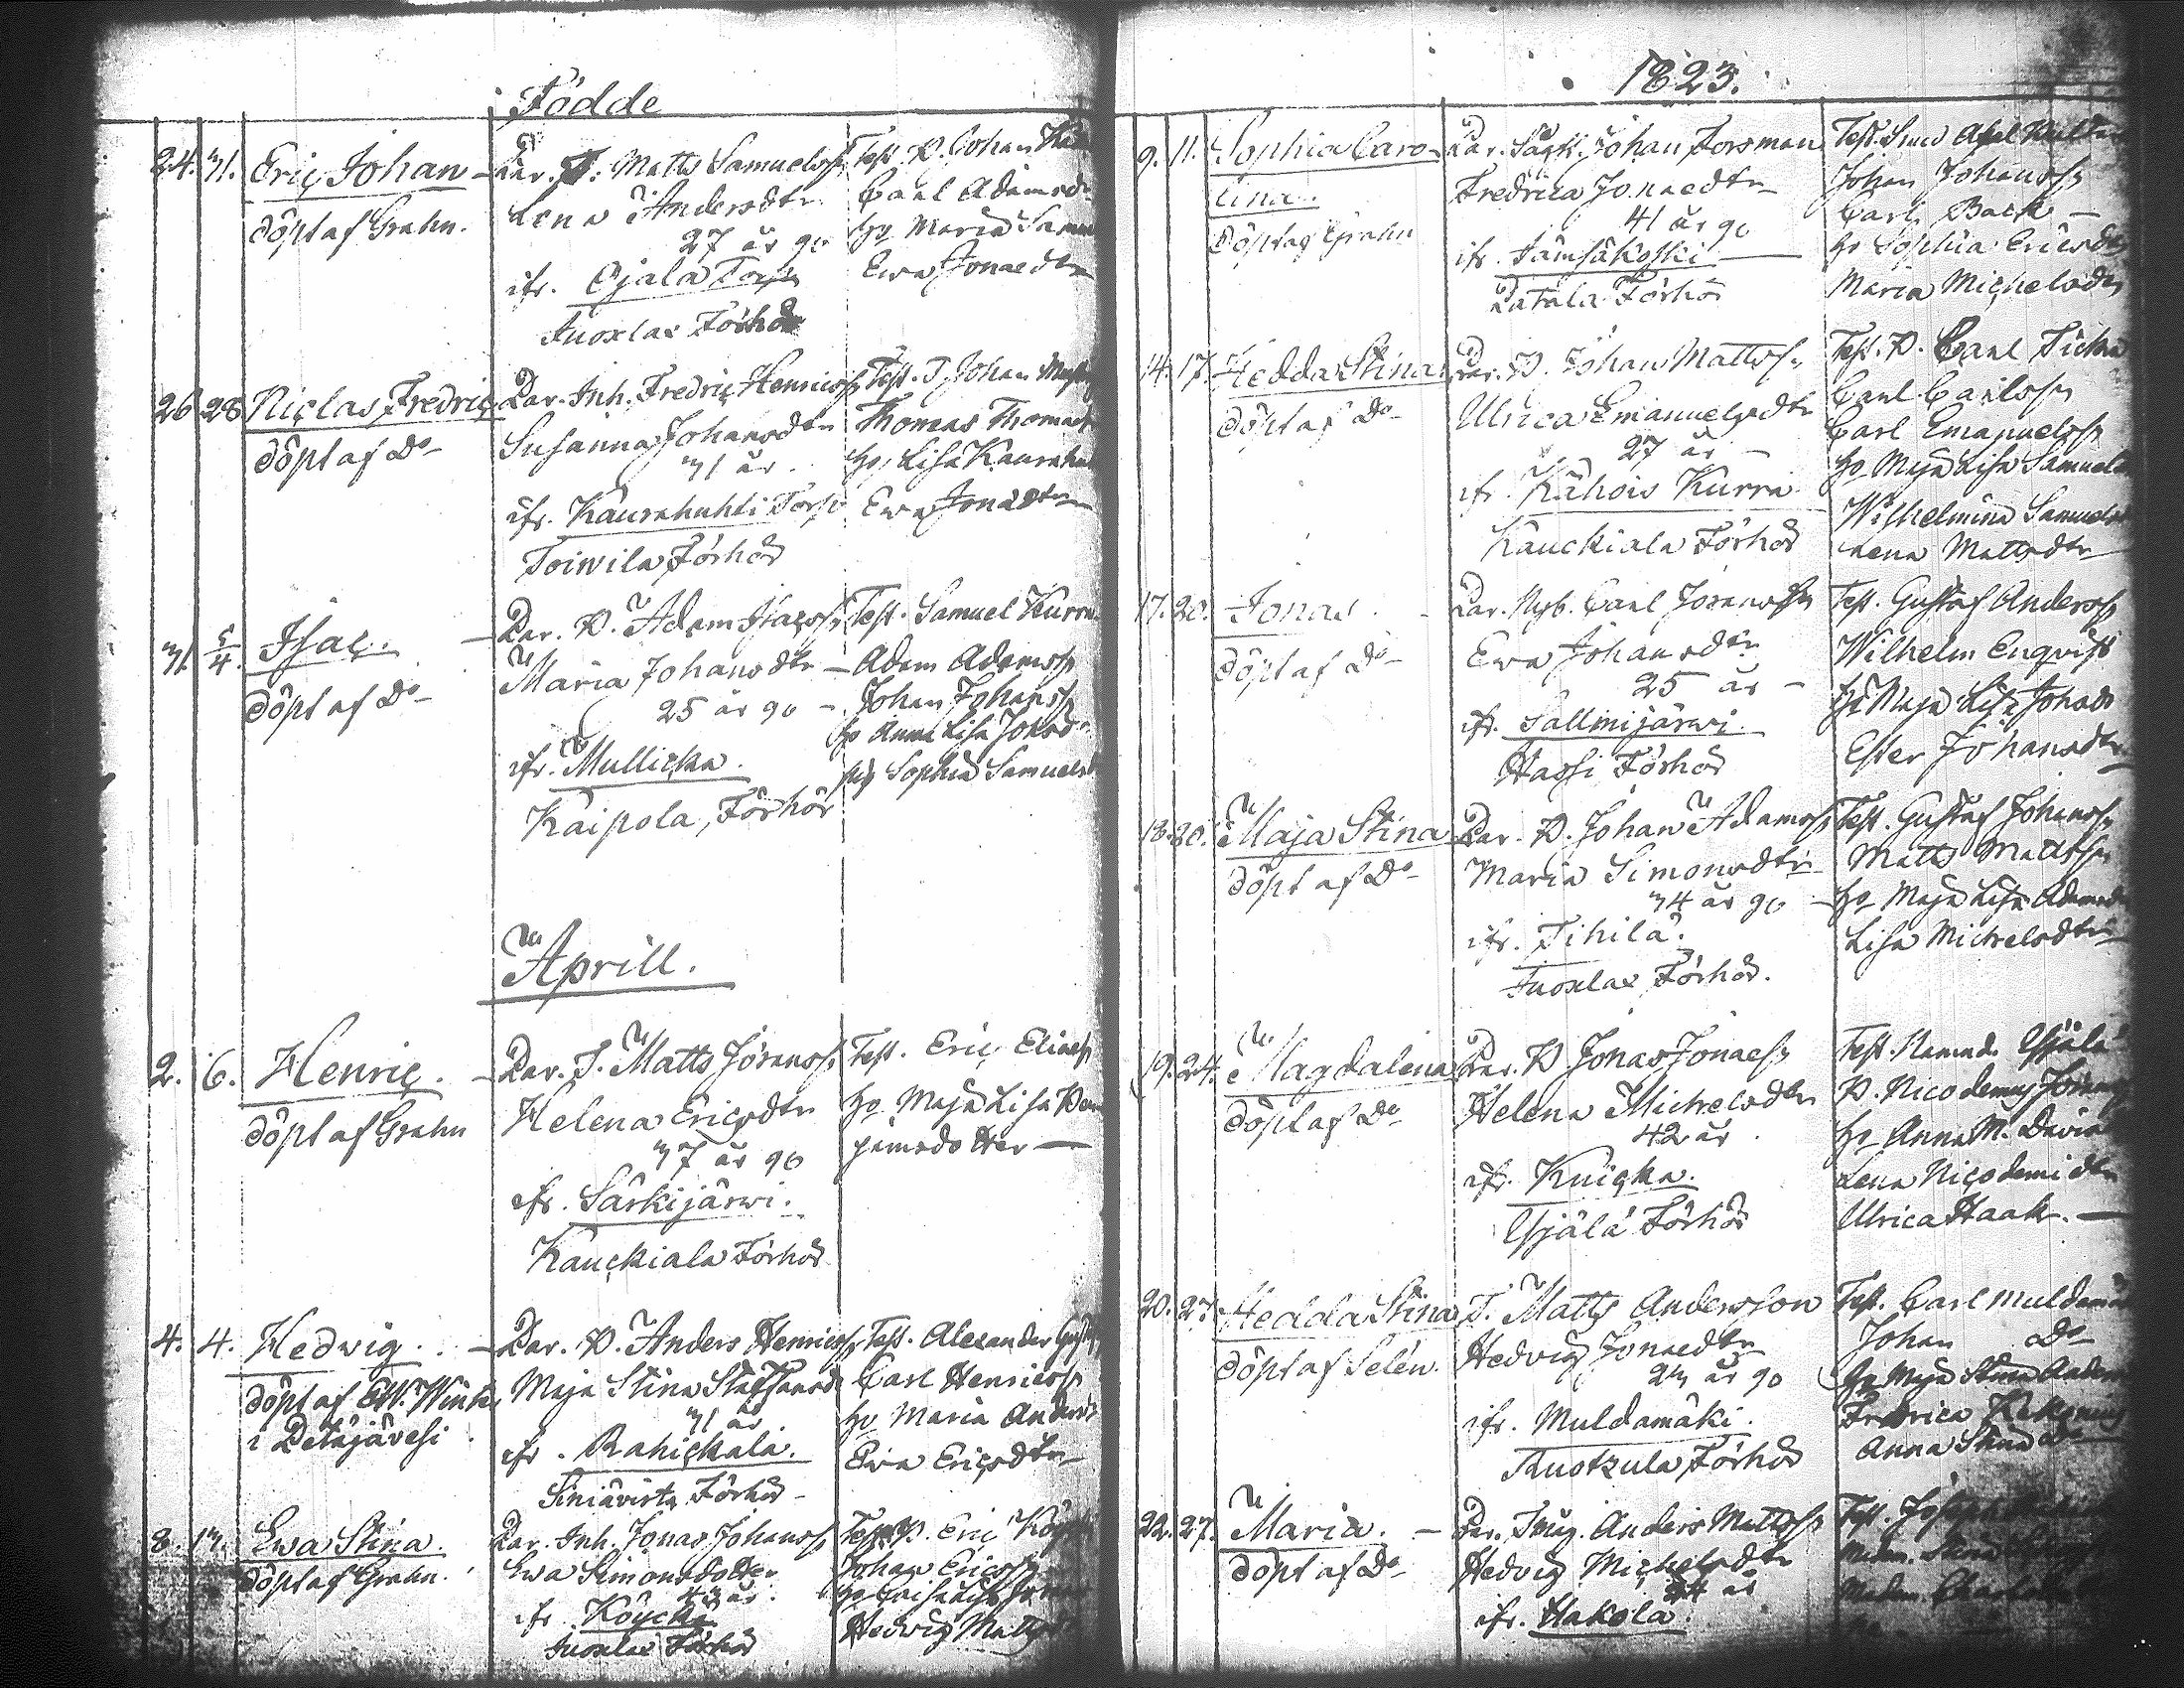 Födde
24. 31. Eric Johan
döpt af Grahn.
Par. T. Matts Samuelss.
Lena Andersdtr
27 år go
ifr. Ojala Torp
Juoxlax Förhör
Test. D. Johan
Carl Adamsd
ho Maria
Ewa Jonaedtr
26 28 Niclas Fredric
döpt af Do
Par. Inh. Fredric Henricss.
Susanna Johansdtr
31 år.
ifr. Kaurahuhti Torp
Toiwila Förhör
Test. T. Johan
Thomas Thomas
ho. Lisa
Ewa Jonaedtr
31. 5/4. Isac.
döpt af Do
Par. D. Adam Isacss.
Maria Johansdtr
25 år go
ifr. Mullicka.
Kaipola, Förhör
Test. Samuel Kurra
Adam Adamss.
Johan Johanss.
ho Anna Lisa
pig Sophia Samuelsd
Aprill.
2. 6. Henric.
döpt af Grahn
Par. T. Matts Jöranss.
Helena Ericsdtr
37 år go
ifr. Särkijärwi.
Kauckiala Förhör
Test. Eric Eliaess.
ho Maja Lisa
4. 4. Hedwig.
döpt af
i Petäjävesi
Par. D. Anders Henricss.
Maja Stina Staffansd
31 år
ifr. Rahickala.
Siniävirta Förhör
Test. Alexander
Carl Henricss.
ho Maria Anders
Ewa Ericsdtr
8. 13. Ewa Stina.
döpt af Grahn.
Par. Inh. Jonas Johanss.
Ewa Simonsdotter
43 år.
ifr. Köycka
Juoxlax Förhör
Test. D. Eric
Johan Ericss.
Hedvig Matts
1823.
9. 11. Sophia Caro-
lina.
döpt af Grahn
Par. Johan Forsman
Fredrica Jonaedtr
41 år go
ifr. Jämsäkoski
Patala Förhör
Test. Axel
Johan Johanss.
Carl Back
ho Sophia Ericsdr
Maria Michelsdr
14. 17. Hedda Stina
döpt af Do
Par. D. Johan Mattss.
Ulrica Emanuelsdtr
27 år
ifr. Kähois Kurra
Kauckiala Förhör
Test. D. Carl
Carl Carlss.
Carl Emanuelss.
ho Maja Lisa Samuels
Wilhelmina Samuels
Lena Mattsdtr
17. 20. Jonas.
döpt af Do
Par. Nyb. Carl Jöranss.
Ewa Johansdtr
25 år
ifr. Sallmijärwi.
Hassi Förhör
Test. Gustaf Anderss.
Wilhelm Enqvist
ho Maja Lisa Johans
Ester Johansdtr
18. 20. Maja Stina
döpt af Do
Par. D. Johan Adamss.
Maria Simonsdtr
34 år go
ifr. Tihilä.
Juoxlax Förhör.
Test. Gustaf Johanss.
Matts Mattss.
ho Maja Lisa Adamsd
Lisa Michelsdtr
19. 24. Magdalena
döpt af Do
Par. D. Jonas Jonaess.
Helena Michelsdtr
42 år.
ifr. Knicka.
Yijälä Förhör
Test.
D. Nicodemus
ho Anna M. David
Lena Nicodemi dtr
Ulrica Haak.
20. 27. Hedda Stina
döpt af Selén.
T. Matts Andersson
Hedvig Jonaedtr
23 år go
ifr. Muldamäki.
Ruotzula Förhör
Test. Carl Muldamä
Johan Do
ho Maja Stina Anders
Fredrica
Anna Stina Do
22. 27. Maria.
döpt af Do
Par. Anders Mattss.
Hedvig Michelsdtr
24 år
ifr. Hakola.
Test.